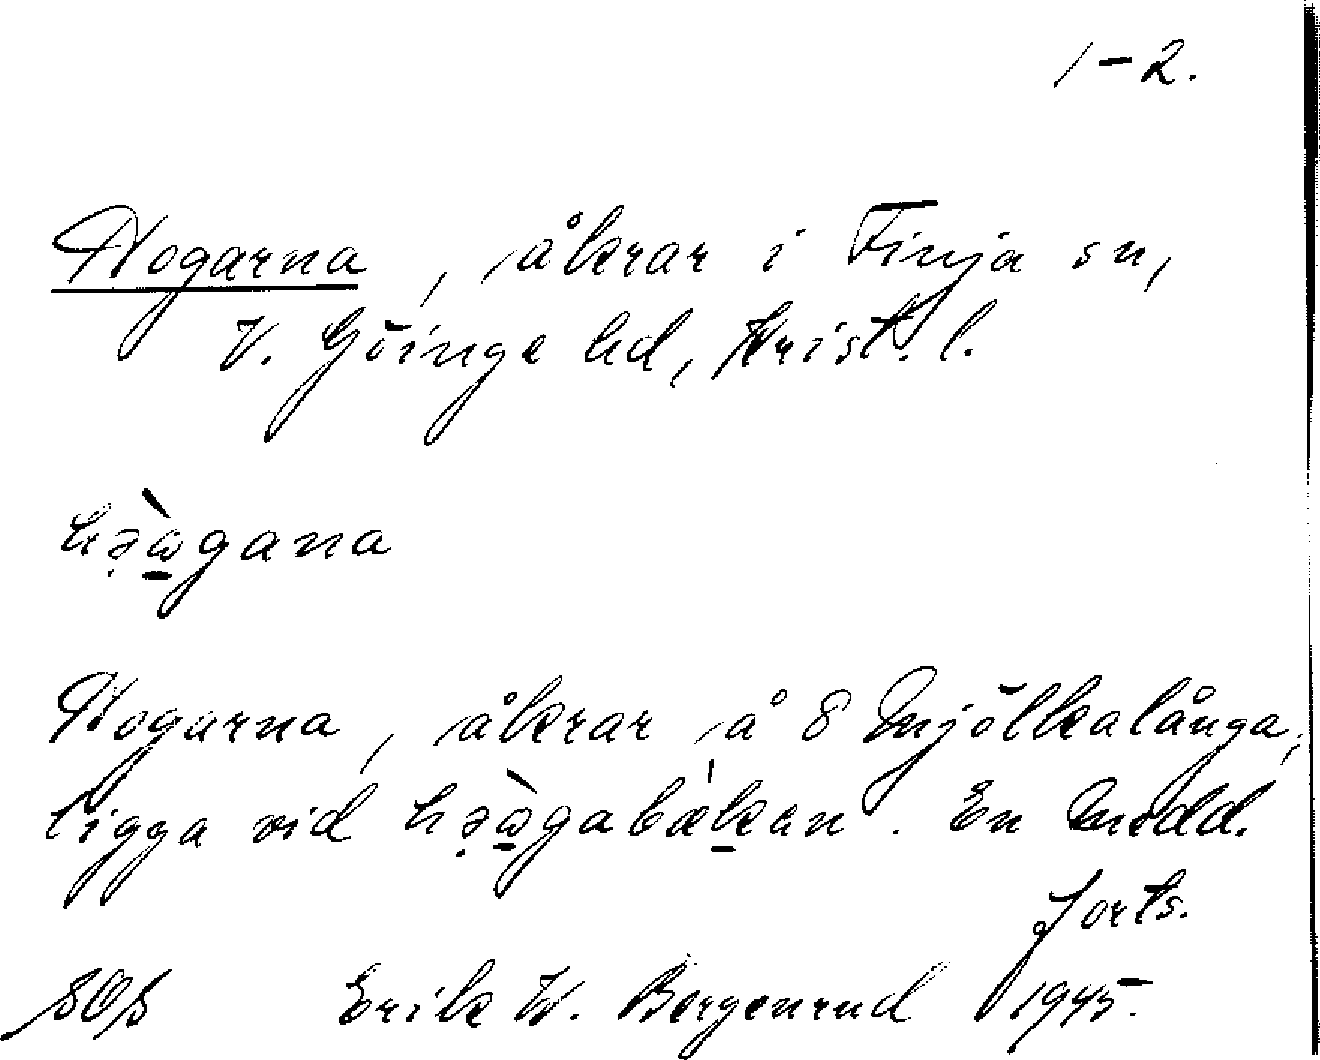 1-2.
Hogarna, åkrar i Finja sn,
V. Göinge hd, Krist. l.
hə̣ὼ̱gana
Hogarna, åkrar å 8 Mjölkalånga,
ligga vid hə̣ὼ̱gabæ̍ḵen. En medd.
forts.
Erik W. Bergenrud 1945.